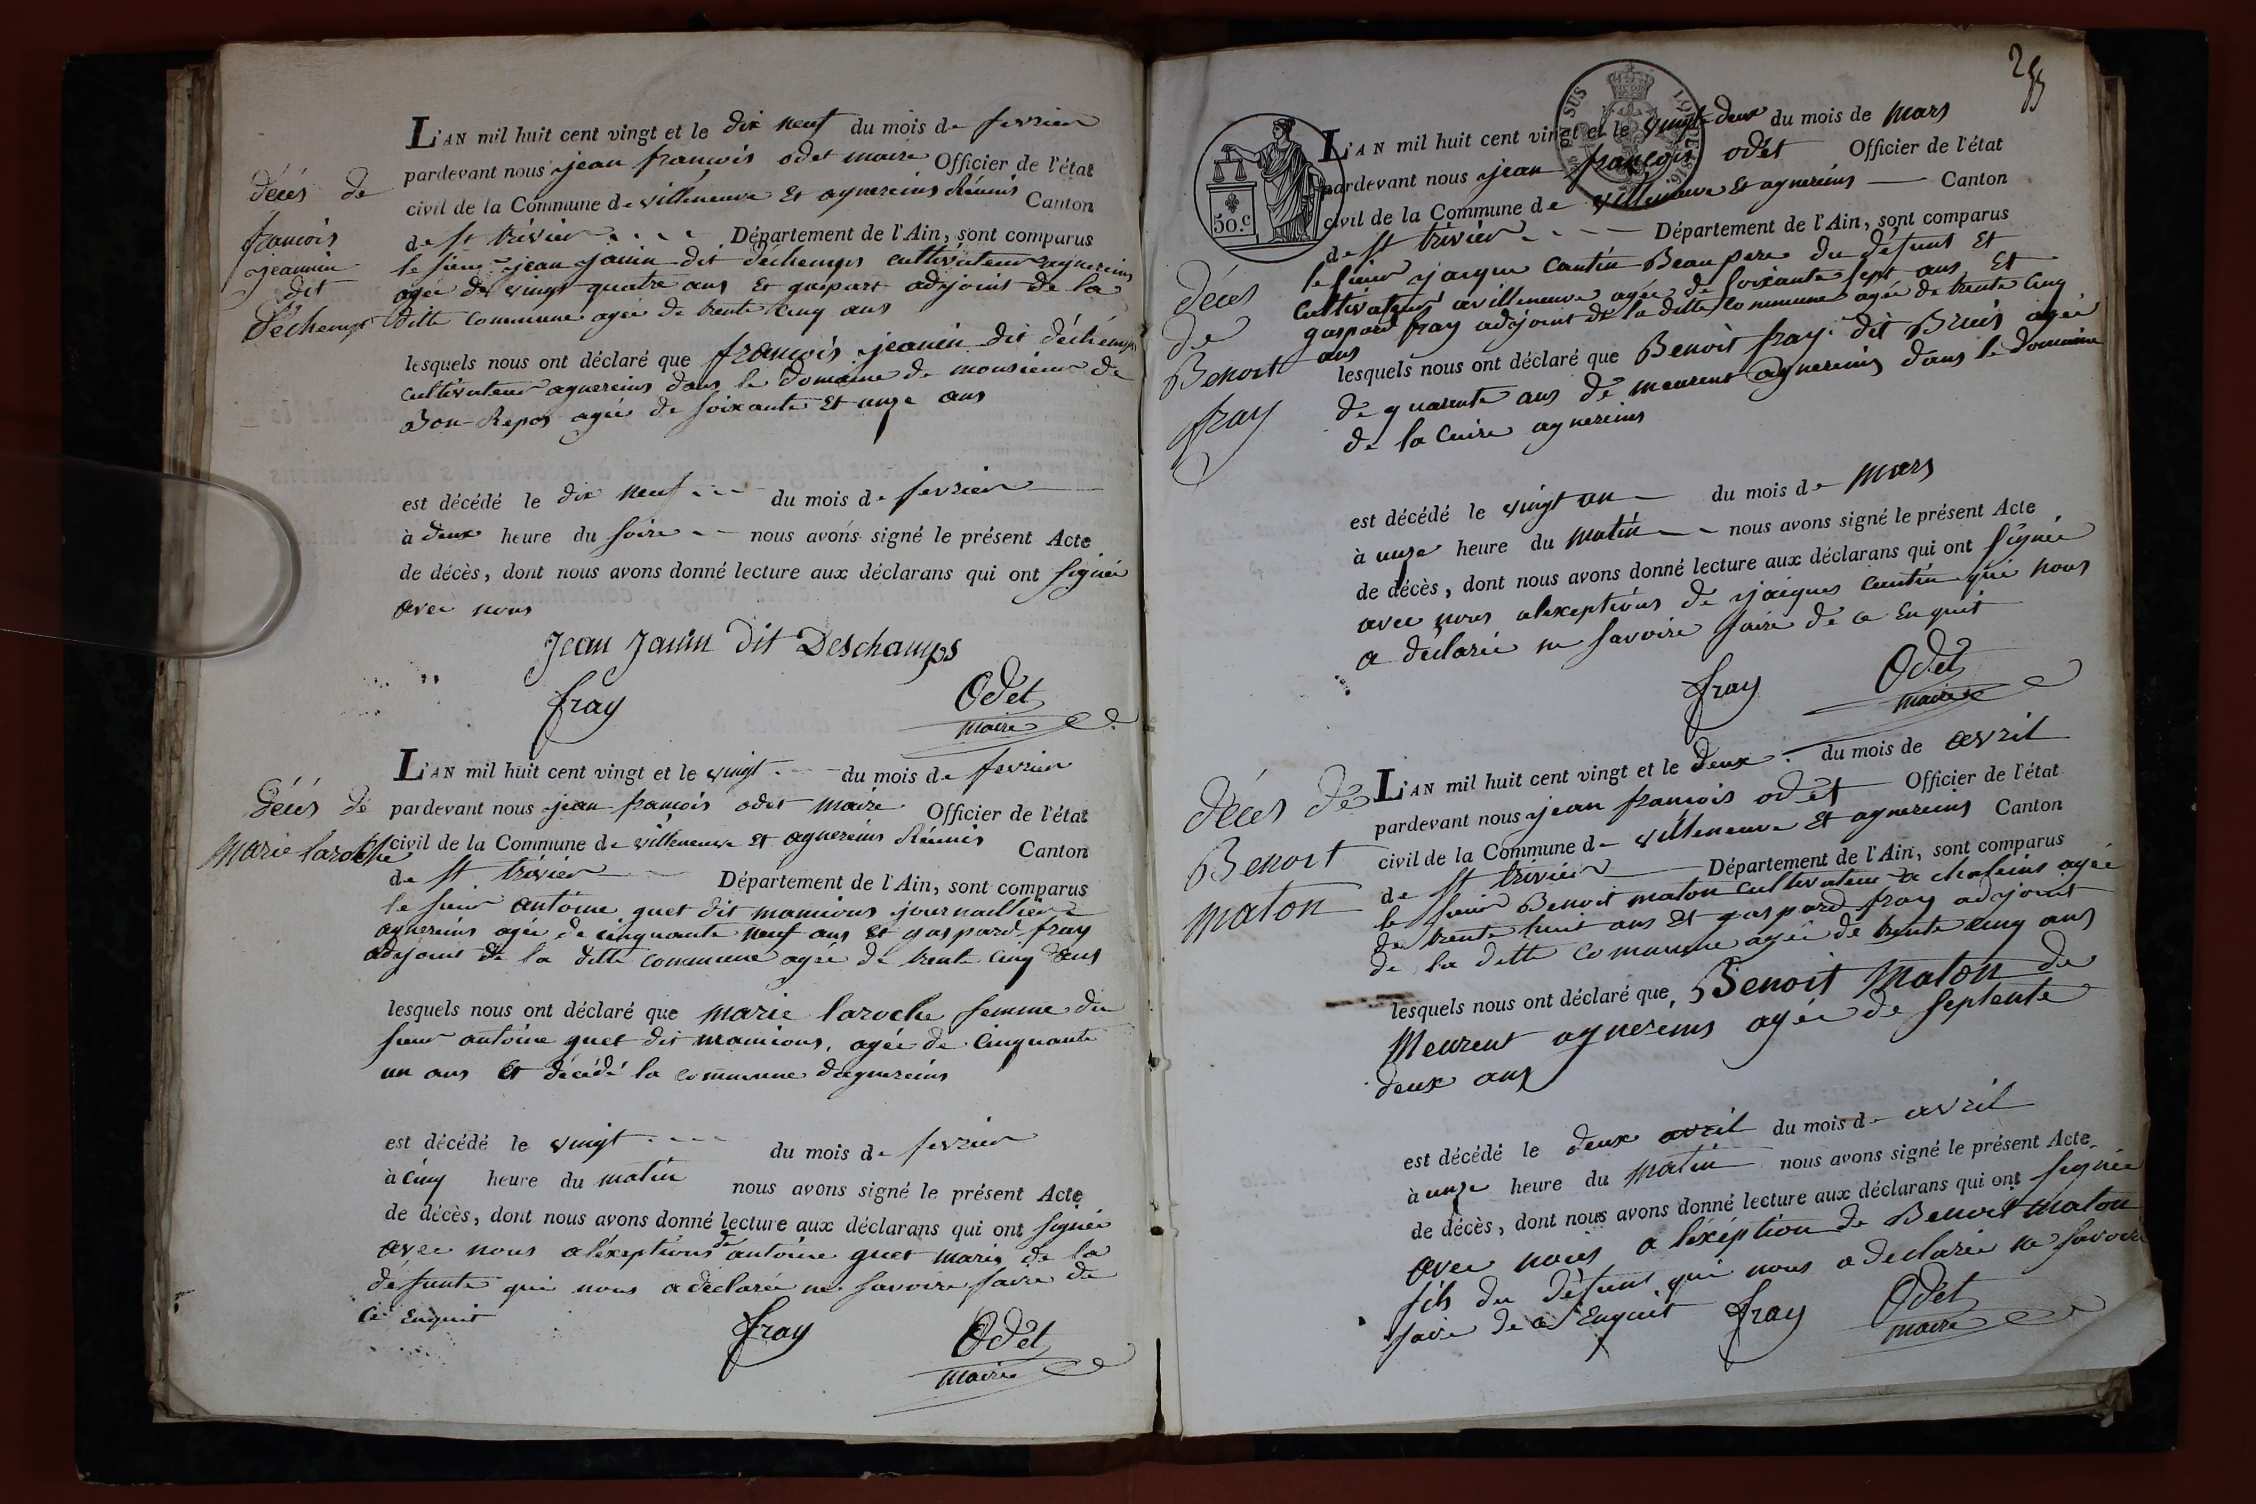 décés de
francois
jeannin
dit
Déchemps
L'AN mil huit cent vingt et le dix neuf du mois de fevrier
pardevant nous jean francois odet maire Officier de l'état
civil de la Commune de villeneuve Et agnereins Réunis Canton
de St trivier Département de l'Ain, sont comparus
le sieur jean janin dit déchemps cultivateur agnereins
agée de vingt quatre ans Et gaspart adjoint de la
ditte commune agée de trente cinq ans
lesquels nous ont déclaré que francois jeanin dit déchemps
cultivateur agnereins dans le domaine de monsieur de
Bon Repos agée de soixante Et unze ans
est décédé le dix neuf du mois de fevrier
à deux heure du soire nous avons signé le présent Acte
de décès, dont nous avons donné lecture aux déclarans qui ont signée
avec nous
Jean Janin dit Deschamps
fray Odet
maire
Décés de
Marie laroche
L'AN mil huit cent vingt et le vingt du mois de fevrier
pardevant nous jean francois odet maire Officier de l'état
civil de la Commune de villeneuve Et agnereins Réunis Canton
de St trivier Département de l'Ain, sont comparus
le sieur antoine guet dit manious journaillier
agnereins agée de cinquante neuf ans Et gaspard fray
adjoint de la ditte commune agée de trente cinq ans
lesquels nous ont déclaré que marie laroche femme du
sieur antoine guet dit manious, agée de cinquante
un ans Et décédé la commune dagnereins
est décédé le vingt du mois de fevrier
à cinq heure du matin nous avons signé le présent Acte
de décès, dont nous avons donné lecture aux déclarans qui ont signée
avec nous aléxeptions de antoine guet maris de la
défunte qui nous a déclarée ne savoire faire de
ce Enquit
fray Odet
maire
255
50.c
L'AN mil huit cent vingt et le vingt deux du mois de mars
pardevant nous jean françois odét Officier de l'état
civil de la Commune de villeneuve Et agnereins Canton
de St trivier Département de l'Ain, sont comparus
le sieur jacque cantin Beaupere du défunt Et
cultivateur avilleneuve agée de soixante sept ans Et
gaspard fray adjoint de la ditte commune agée de trente cinq
ans
Décés
de
Benoit
fray
lesquels nous ont déclaré que Benoit fray dit Bruis agée
de quarente ans de meurent agnereins dans le domaine
de la Cuire agnereins
est décédé le vingt un du mois de mars
à unze heure du matin nous avons signé le présent Acte
de décès, dont nous avons donné lecture aux déclarans qui ont signée
avec nous alexeptions de jacques cantin qui nous
a déclarée ne savoire faire de ce Enquit
fray Odet
maire
Décés de
Benoit
maton
L'AN mil huit cent vingt et le deux du mois de avril
pardevant nous jean francois odét Officier de l'état
civil de la Commune de villeneuve Et agnereins Canton
de St trivier Département de l'Ain, sont comparus
le sieur Benoit maton cultivateur a chaleins agée
de trente huit ans Et gaspard fray adjoint
de la ditte commune agée de trente cinq ans
lesquels nous ont déclaré que Benoit Maton de
Meurent agnereins agée de septente
deux ans
est décédé le deux avril du mois de avril
à unze heure du matin nous avons signé le présent Acte
de décès, dont nous avons donné lecture aux déclarans qui ont signée
avec nous a léxéption de Benoit maton
fils du défunt qui nous a declarée ne savoire
faire de ce Enquit fray Odet
maire